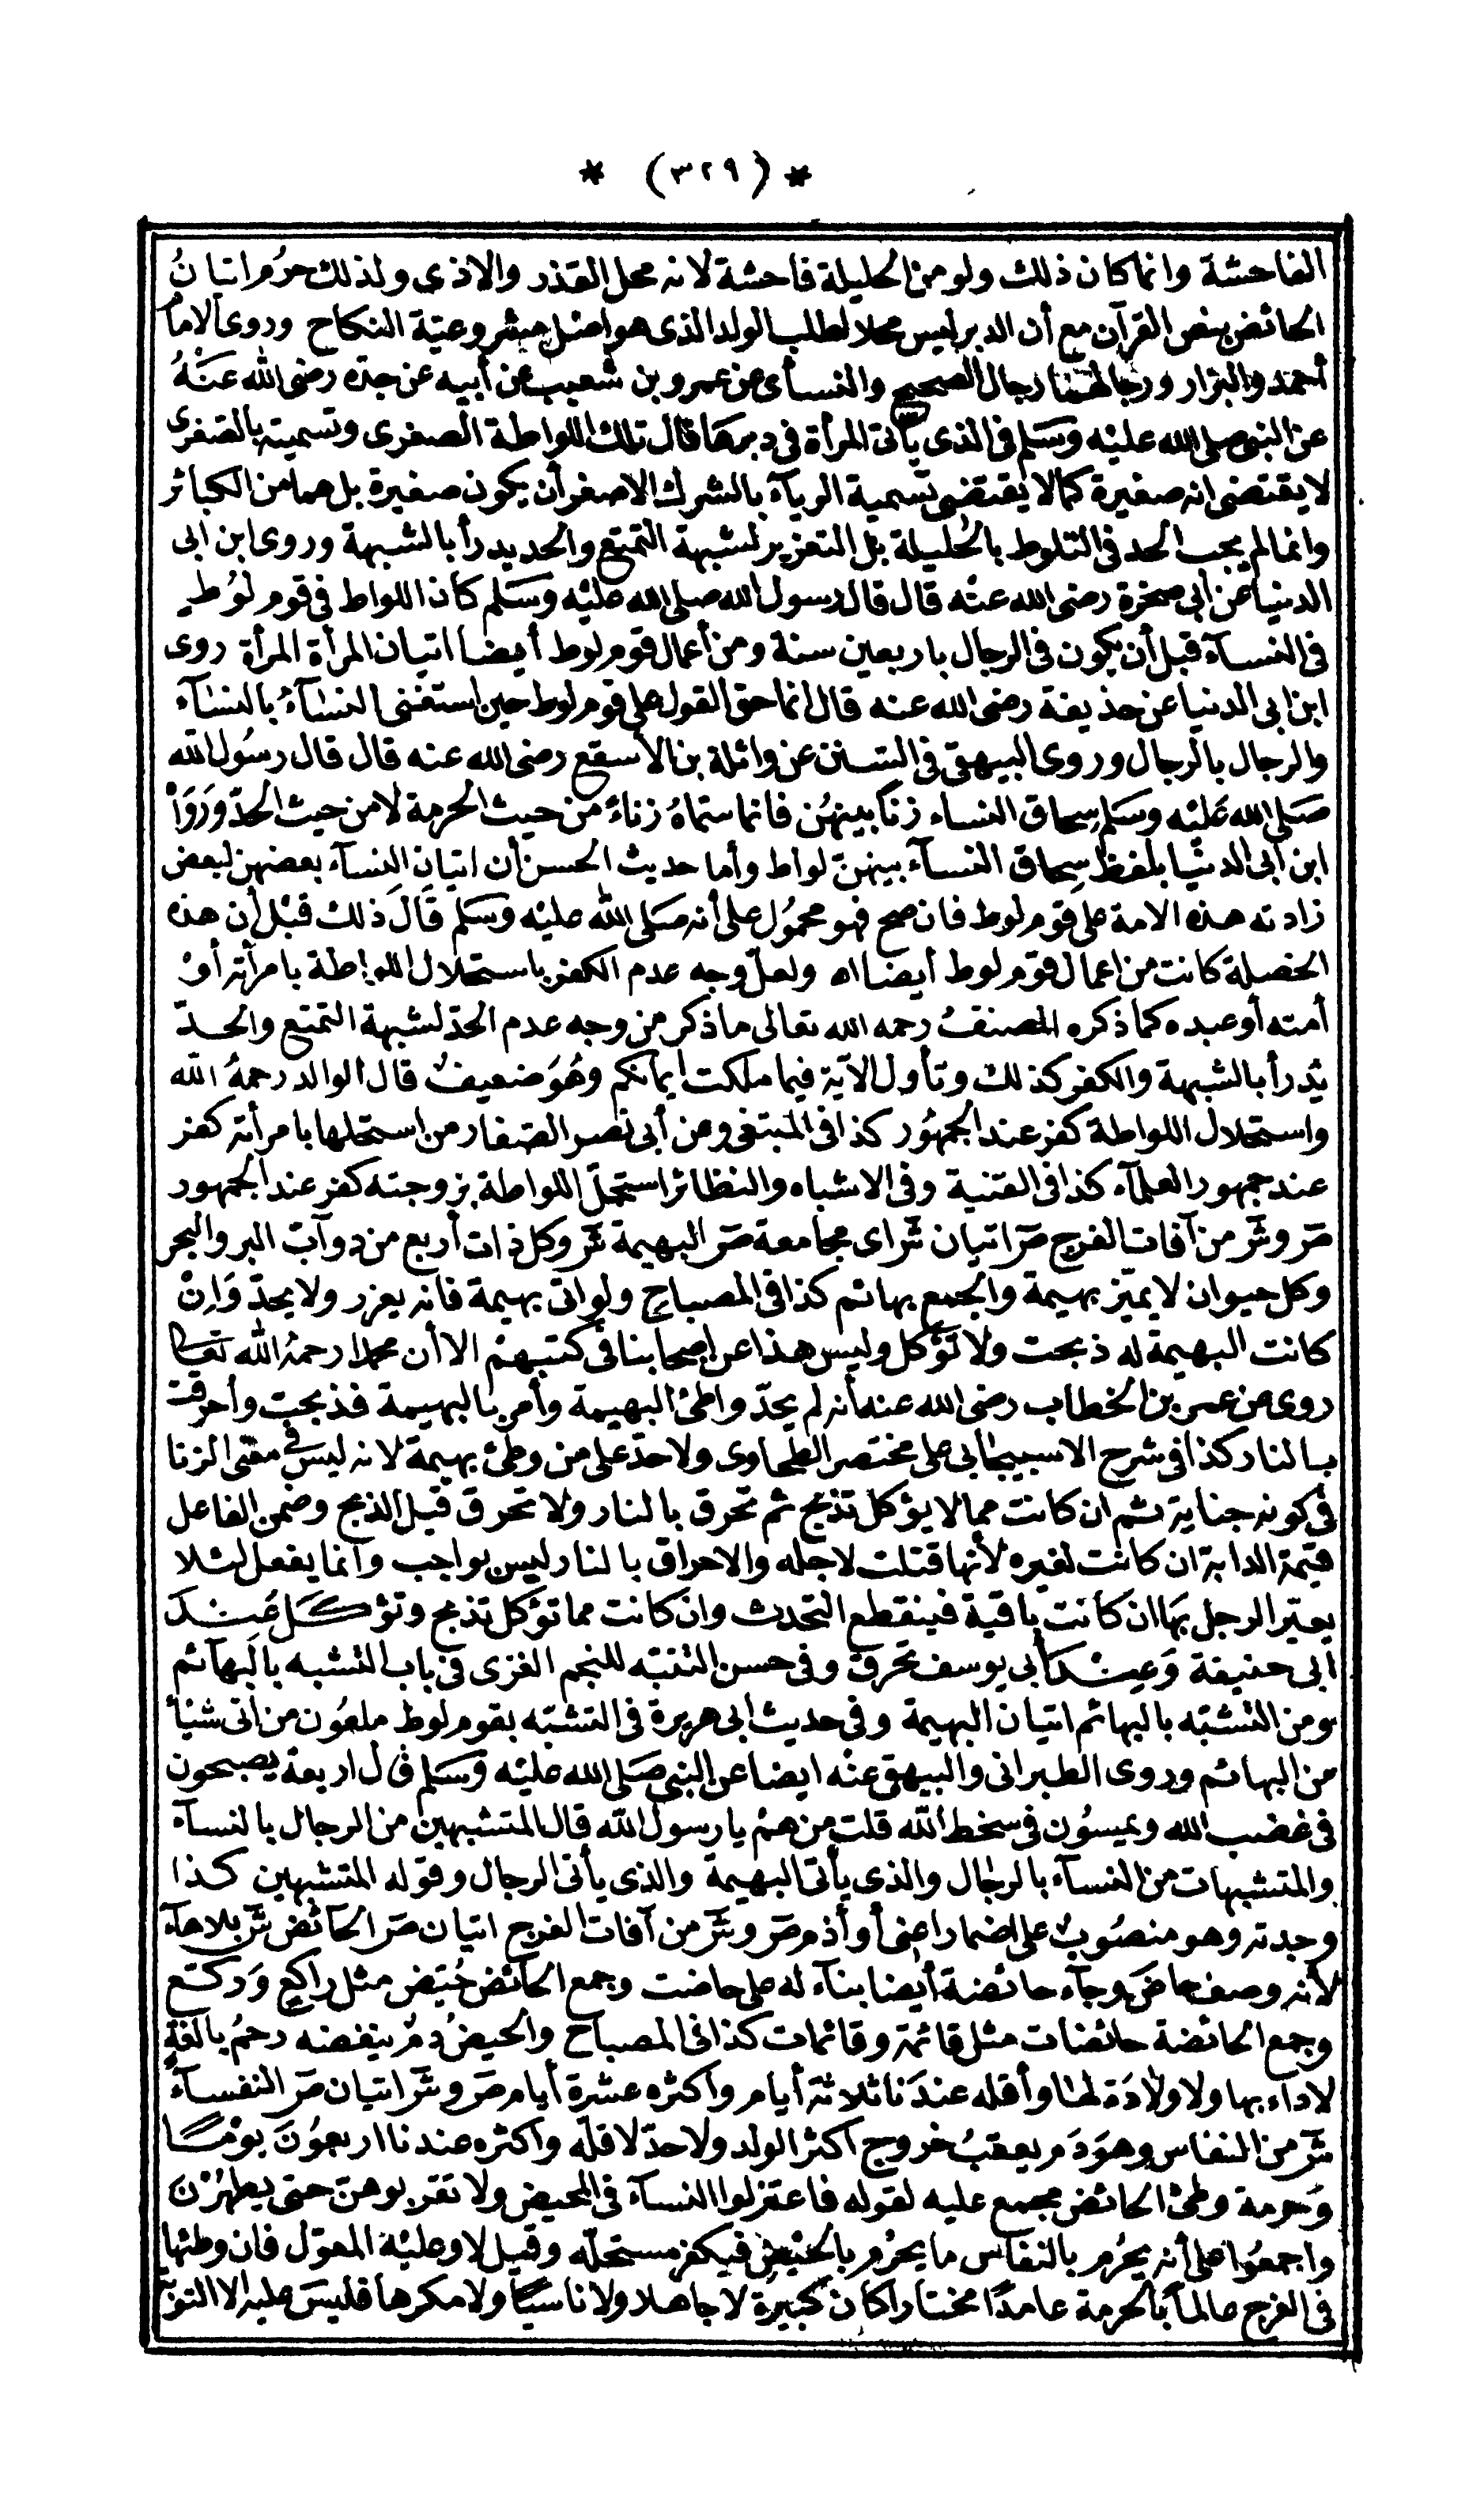 * (٣٢٩) *
الفاحشة وانما كان ذلك ولو من الحليلة فاحشة لانه محل القذر والاذى ولذلك حرُم اتيانُ
الحائض بنص القرآن مع أن الدبر ليس محلا لطلب الولد الذى هو اصل مشروعية النكاح وروى الامام
أحمد والبزار ورجالهما رجال الصحيح والنسأى عن عمرو بن شعيب عن أبيه عن جده رضى الله عنهُ
عن النبى صلى الله عليْه وسَلم فى الذى يأتى المرأة فى دبرها قال تلك اللواطة الصغرى وتسميته بالصغرى
لا يقتضى انه صغيرة كما لا يقتضى تسمية الريآء بالشرك الاصغر أن يكون صغيرة بل هما من الكبائر
وانما لم يجب الحد فى التلوط بالحليلة بل التعزير لشبهة التمتع والحد يدرأ بالشبهة وروى ابن ابى
الدنيا عن ابى صخرة رضى الله عنْه قال قال رسول الله صلى الله عليْه وسَلم كان اللواط فى قوم لوُطٍ
فى النسآء قبل أن يكون فى الرجال باربعين سنة ومن أعمال قوم لوط أيضا اتيان المرأة المرأة روى
ابن ابى الدنيا عن حذيفة رضى الله عنه قال انما حق القول على قوم لوط حين استغنى النسَآءُ بالنسَآء
والرجال بالرجال وروى البيهقى فى السنن عن واثلة بن الأسقع رضى الله عنه قال قال رسُول الله
صَلى الله عَليْه وسَلم سِحاق النساء زنًا بينهُن فانما سماهُ زناءً من حيث الحرمة لا من حيث الحدّ وَرَوَاْ
ابن ابى الدنيا بلفظ سِحاق النسآء بينهنّ لواط وأما حديث الحسن أن اتيان النسآء بعضهن لبعض
زادته هذه الامة على قوم لوط فان صح فهو محموُل على أنه صَلى الله عليْه وسَلم قَالَ ذلك قبْل أن هذه
الخصلة كانت من اعمال قوم لوط أيضا اه ولعلّ وجه عدم الكفر باستحلال اللواطة بامرأته أوْ
أمته أو عبده كما ذكره المصنفُ رحمه الله تعالى ما ذكر من وجه عدم الحدّ لشبهة التمتع والحدّ
يدرأ بالشبهة والكفر كذلك وتأول الآية فيما ملكت ايمانكم وهُوَ ضعيفٌ قال الوالد رحمهُ الله
واستحلال اللواطة كفر عند الجمهُور كذا فى المبتغى وعن أبى نصر الصفار من استحلها بامرأته كفر
عند جمهور العلمآء كذا فى القنية وفى الاشباه والنظائر استحلّ اللواطة بزوجته كفر عند الجمهور
صَر وشَر من آفات الفرج صَر اتيان شَر اى مجامعة صَر البهيمة شَر وكل ذات أربع من دوآبّ البر والبحر
وكل حيوان لا يميّز بهيمة والجمع بهائم كذا فى المصباح ولو اتى بهيمة فانه يعزر ولا يحدّ وَاِنْ
كانت البهيمة له ذبحت ولا تؤكل وليس هذا عن اصحابنا فى كتبهمْ الا أن محمدا رحمهُ الله تعَالى
روى عن عمر بن الخطاب رضى الله عنه أنه لم يحدّ واطئ البهيمة وأمر بالبهيمة فذبحت وأحرقت
بالنار كذا فى شرح الاسبيجابى على مختصر الطحاوى ولا حدّ على من وطئ بهيمة لانه ليس فى معْنى الزنا
فى كونه جناية ثم ان كانت مما لا يؤكل تذبح ثم تحرق بالنار ولا تحرق قبل الذبح وضمن الفاعل
قيمة الدابة ان كانت لغيره لأنها قتلت لاجله والاحراق بالنار ليس بواجب وانما يفعل لئلا
يعيّر الرجل بهَا ان كانت باقية فينقطع التحدث وان كانت مما تؤكل تذبح وتؤكَل عندَ
ابى حنيفة وَعندَ أبى يوسف تحرق وفى حسن التنبّه للنجم الغزى فى باب التشبه بالبهآئم
ومن التشبّه بالبهائم اتيان البهيمة وفى حديث ابى هريرة فى التشبّه بقوم لوط ملعُون من اتى شيئا
من البهائم وروى الطبرانى والبيهقى عنْه ايضا عن النبى صَلى الله عليْه وَسَلم قال اربعة يصبحون
فى غضب الله ويمسُون فى سخط الله قلت من همْ يا رسول الله قال المتشبهين من الرجال بالنسآء
والمتشبهات من النسآء بالرجال والذى يأتى البهيمة والذى يأتى الرجال وقوله المتشبهين كذا
وجدته وهو منصُوبٌ على اضمار اعنى أو أذم صَر وشَر من آفات الفرج اتيان صَر الحآئض شَر بلا هآء
لأنه وصف خاصّ وجآء حائضة أيضا بنآء له على حاضت وجمع الحآئض حُيّض مثل راكع وَركّع
وجمع الحائضة حائضات مثل قائمة وقائمات كذا فى المصباح والحيضُ دمُ ينفضه رحمُ بالغة
لا داء بها ولا ولادَة لها وأقله عندَنا ثلاثة أيام واكثره عشرة أيام صَر وشَر اتيان صَر النفسآء
شَر من النفاس وهوَ دَم يعقبُ خروج اكثر الولد ولا حدّ لاقله واكثره عندنا اربعُونَ يوْمًا
وَحرمة وطئ الحائض مجمع عليه لقوله فاعتزلوا النسآء فى المحيض ولا تقربوهن حتى يطهرْنَ
واجمعُوا على أنه يحرُم بالنفاس ما يحرُم بالحيْض فيكفر مستحلّه وقيل لا وعليْه المعوّل فان وطئها
فى الفرج عالماً بالحرمة عامدًا مختارا كان كبيرَة لا جاهلا ولا ناسيًا ولا مكرها فليسَ عليه الا التوبة